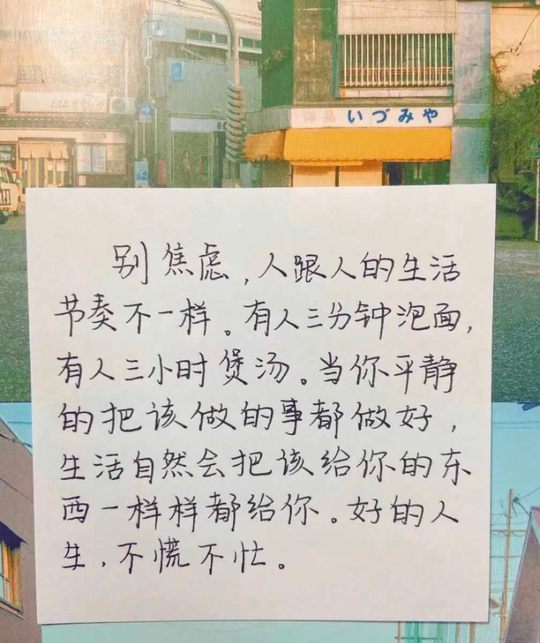 洋品 いづみや
别焦虑，人跟人的生活
节奏不一样。有人三分钟泡面，
有人三小时煲汤。当你平静
的把该做的事都做好，
生活自然会把该给你的东
西一样样都给你。好的人
生，不慌不忙。